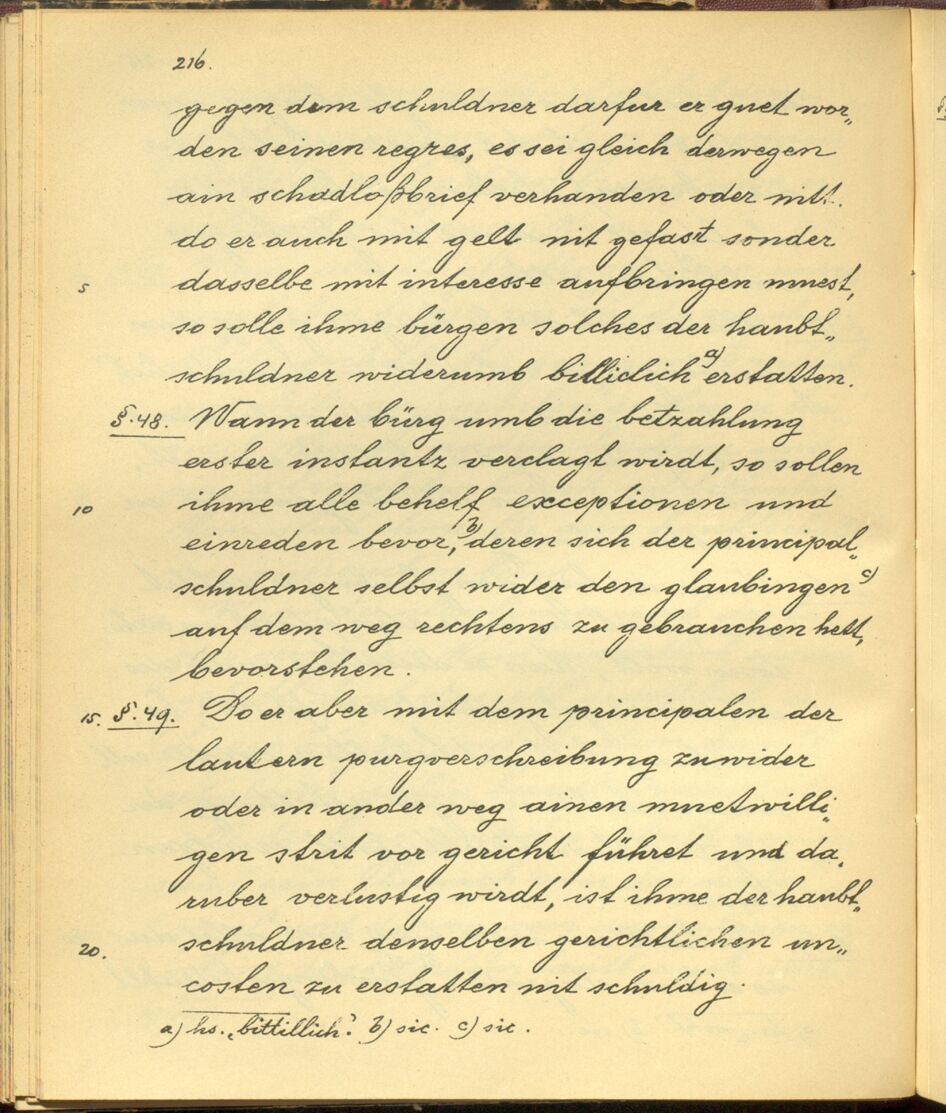 216.
gegen dem schuldner darfur er guet wor„
den seinen regres, es sei gleich derwegen
ain schadloßbrief verhanden oder nitt.
do er auch mit gelt nit gefast sonder
5 dasselbe mit interesse aufbringen muest,
so solle ihme bürgen solches der haubt„
schuldner widerumb billiclich a) erstatten.
§.48. Wann der bürg umb die betzahlung
erster instantz verclagt wirdt, so sollen
10 ihme alle behelf exceptionen und
einreden bevor, b) deren sich der principal„
schuldner selbst wider den glaubingen c)
auf dem weg rechtens zu gebrauchen hett,
bevorstehen.
15. §.49. Do er aber mit dem principalen der
lautern purgverschreibung zuwider
oder in ander weg ainen muetwilli„
gen strit vor gericht führet und da„
ruber verlustig wirdt, ist ihme der haubt„
20. schuldner denselben gerichtlichen un„
costen zu erstatten nit schuldig.
a) hs. „bittillich". b) sic. c) sic.